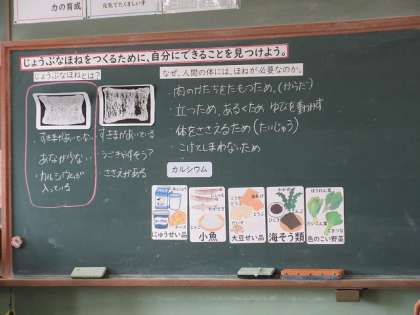 力の育成
じょうぶなほねをつくるために、自分にできることを見つけよう。
じょうぶなほねとは?
なぜ、人間の体には、ほねが必要なのか。
すきまがあいてない
すきまがあいている
あながない
・カルシウムが
入っている
うごきやすそう?
ささえがある
・肉のかたちをたもつため。(からだ)
・立つため、あるくため ゆびを動かす
・体をささえるため(たいじゅう)
・こけてしまわないため
カルシウム
にゅうせい品
小魚
大豆せい品
海そう類
色のこい野菜